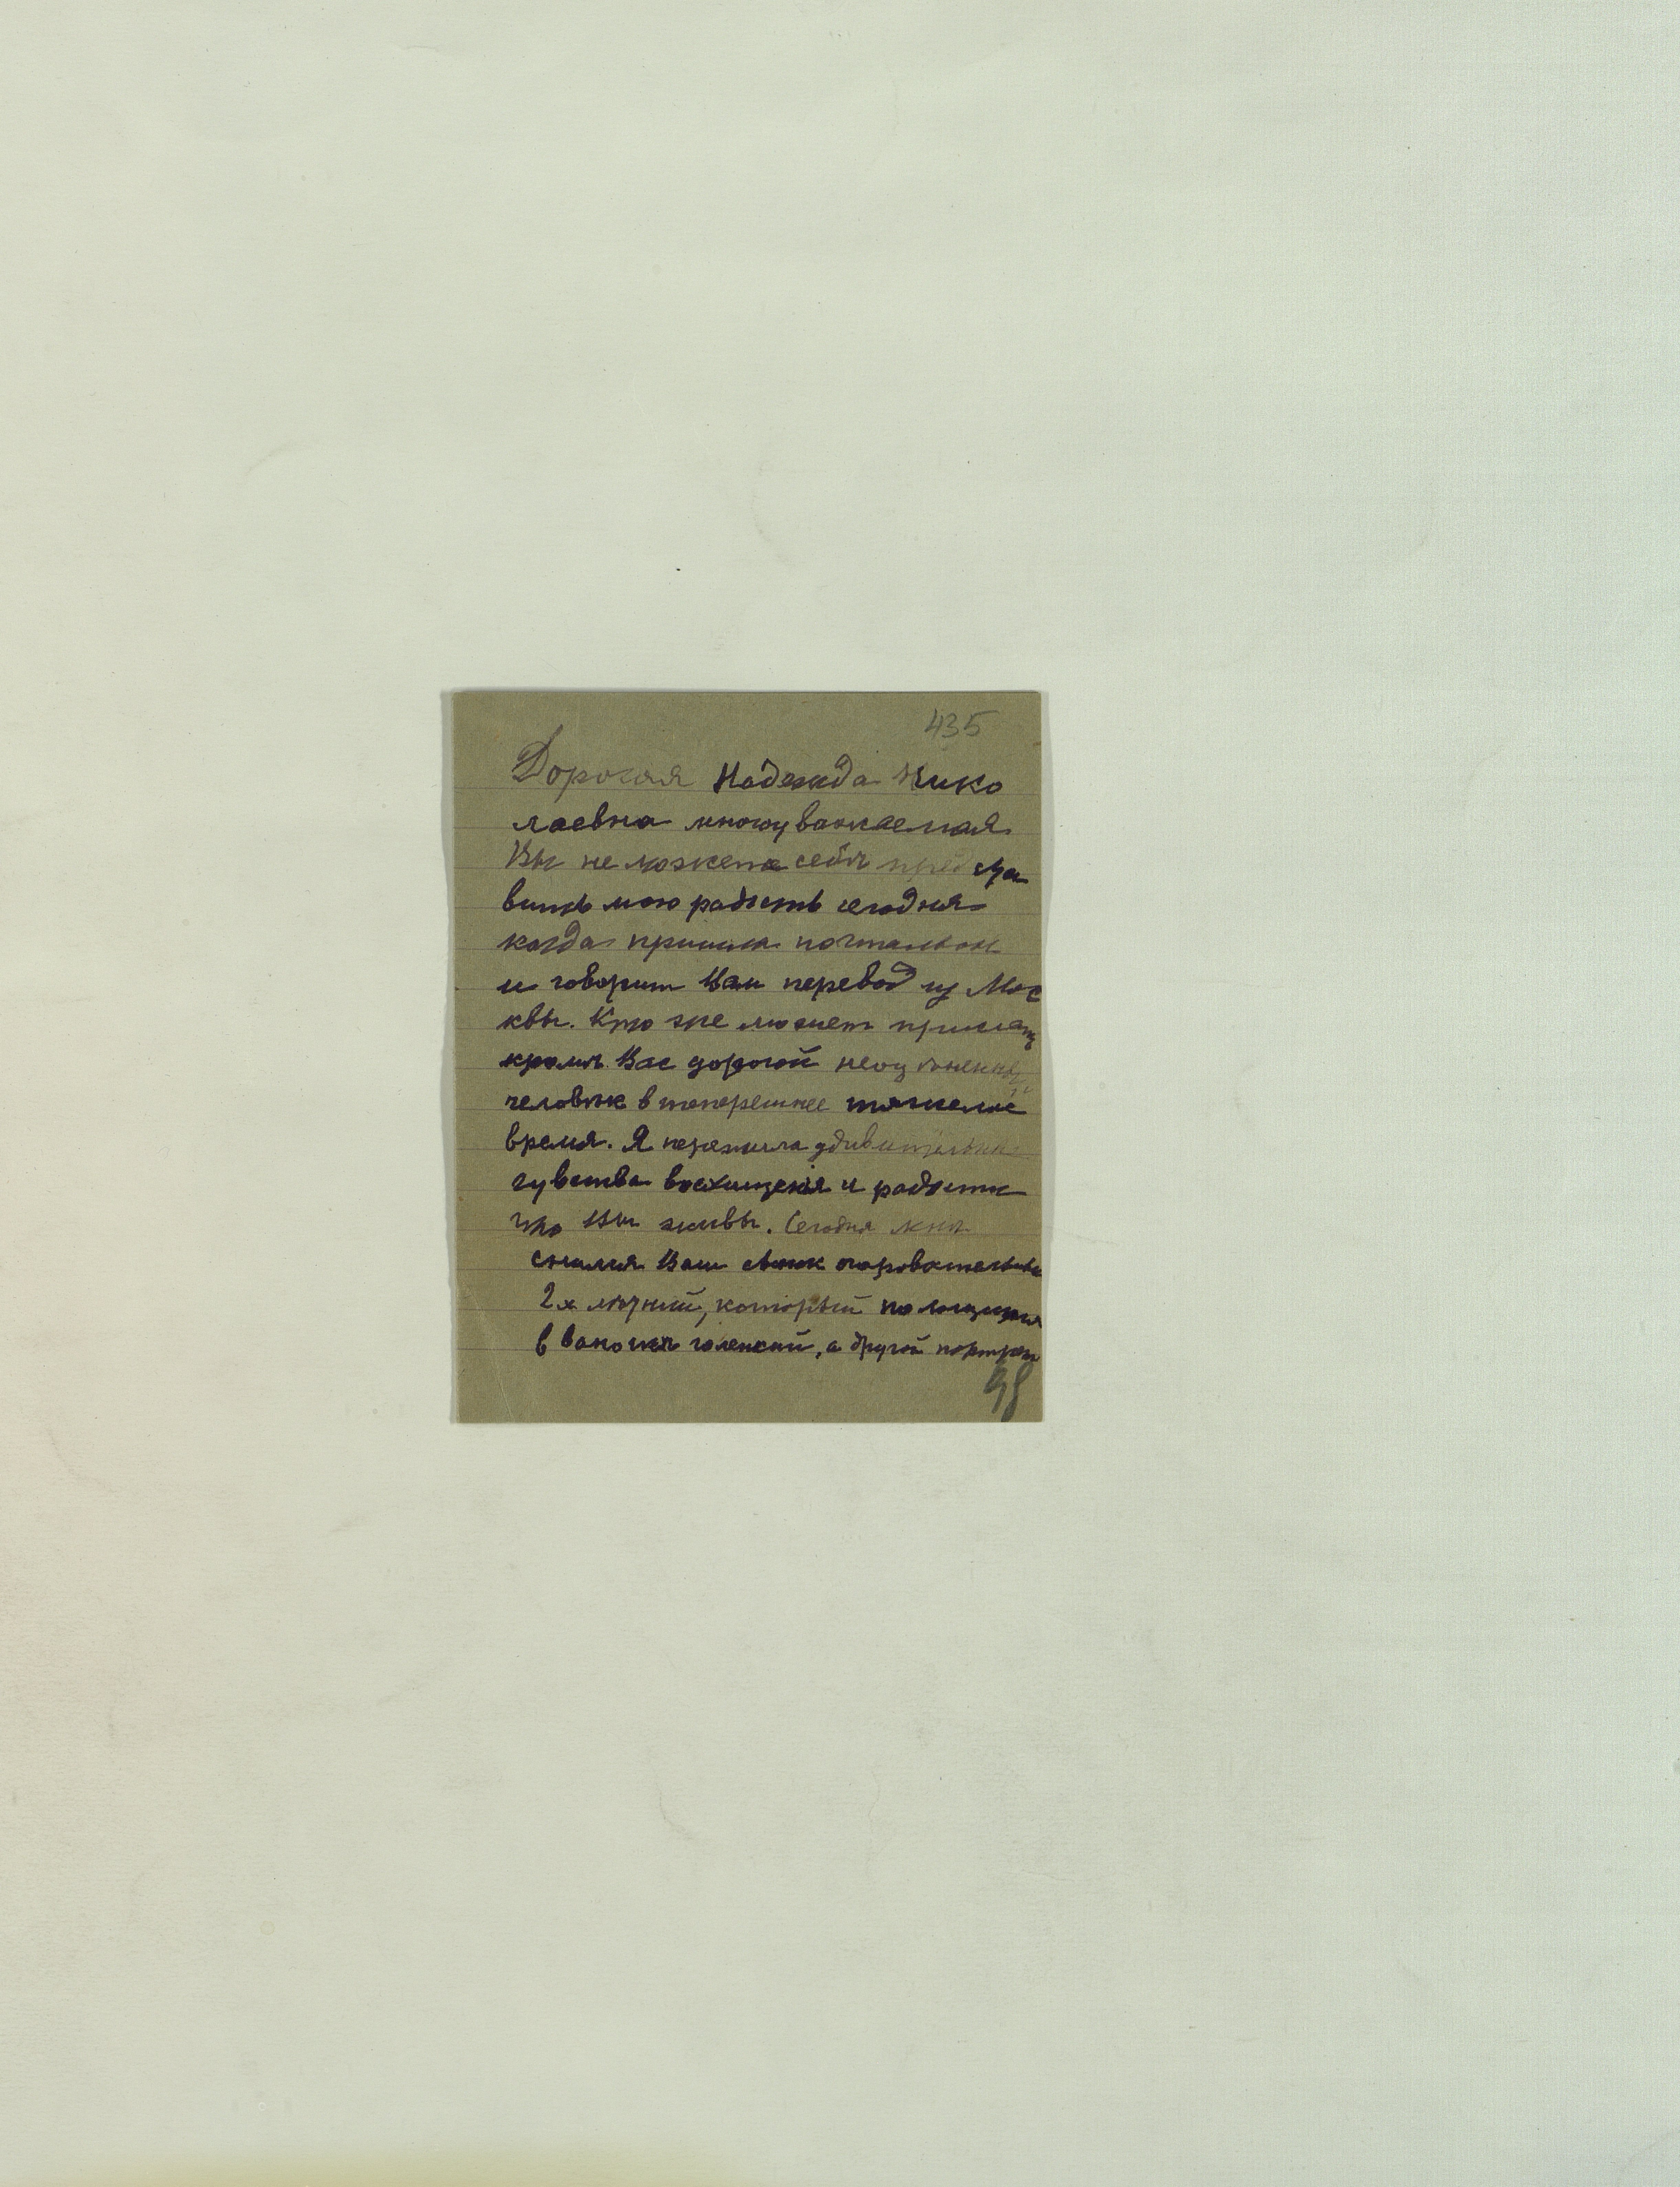 435
Дорогая Надежда Нико
лаевна многуважаемая
Вы не можете себѣ предста
вить мою радость сегодня
когда пришла почтальон
и говорит Вам перевод из Мос
квы. Кто же может прислать
кромѣ Вас дорогой неоцѣненный
человѣк в теперешнее тяжелое
время. Я пережила удивительные
чувства восхищенiя и радости
что Вы живы. Сегодня мнѣ
снился Ваш очаровательный
2х лѣтний, который полощится
в ванночкѣ голенкий, а другой портрет
98